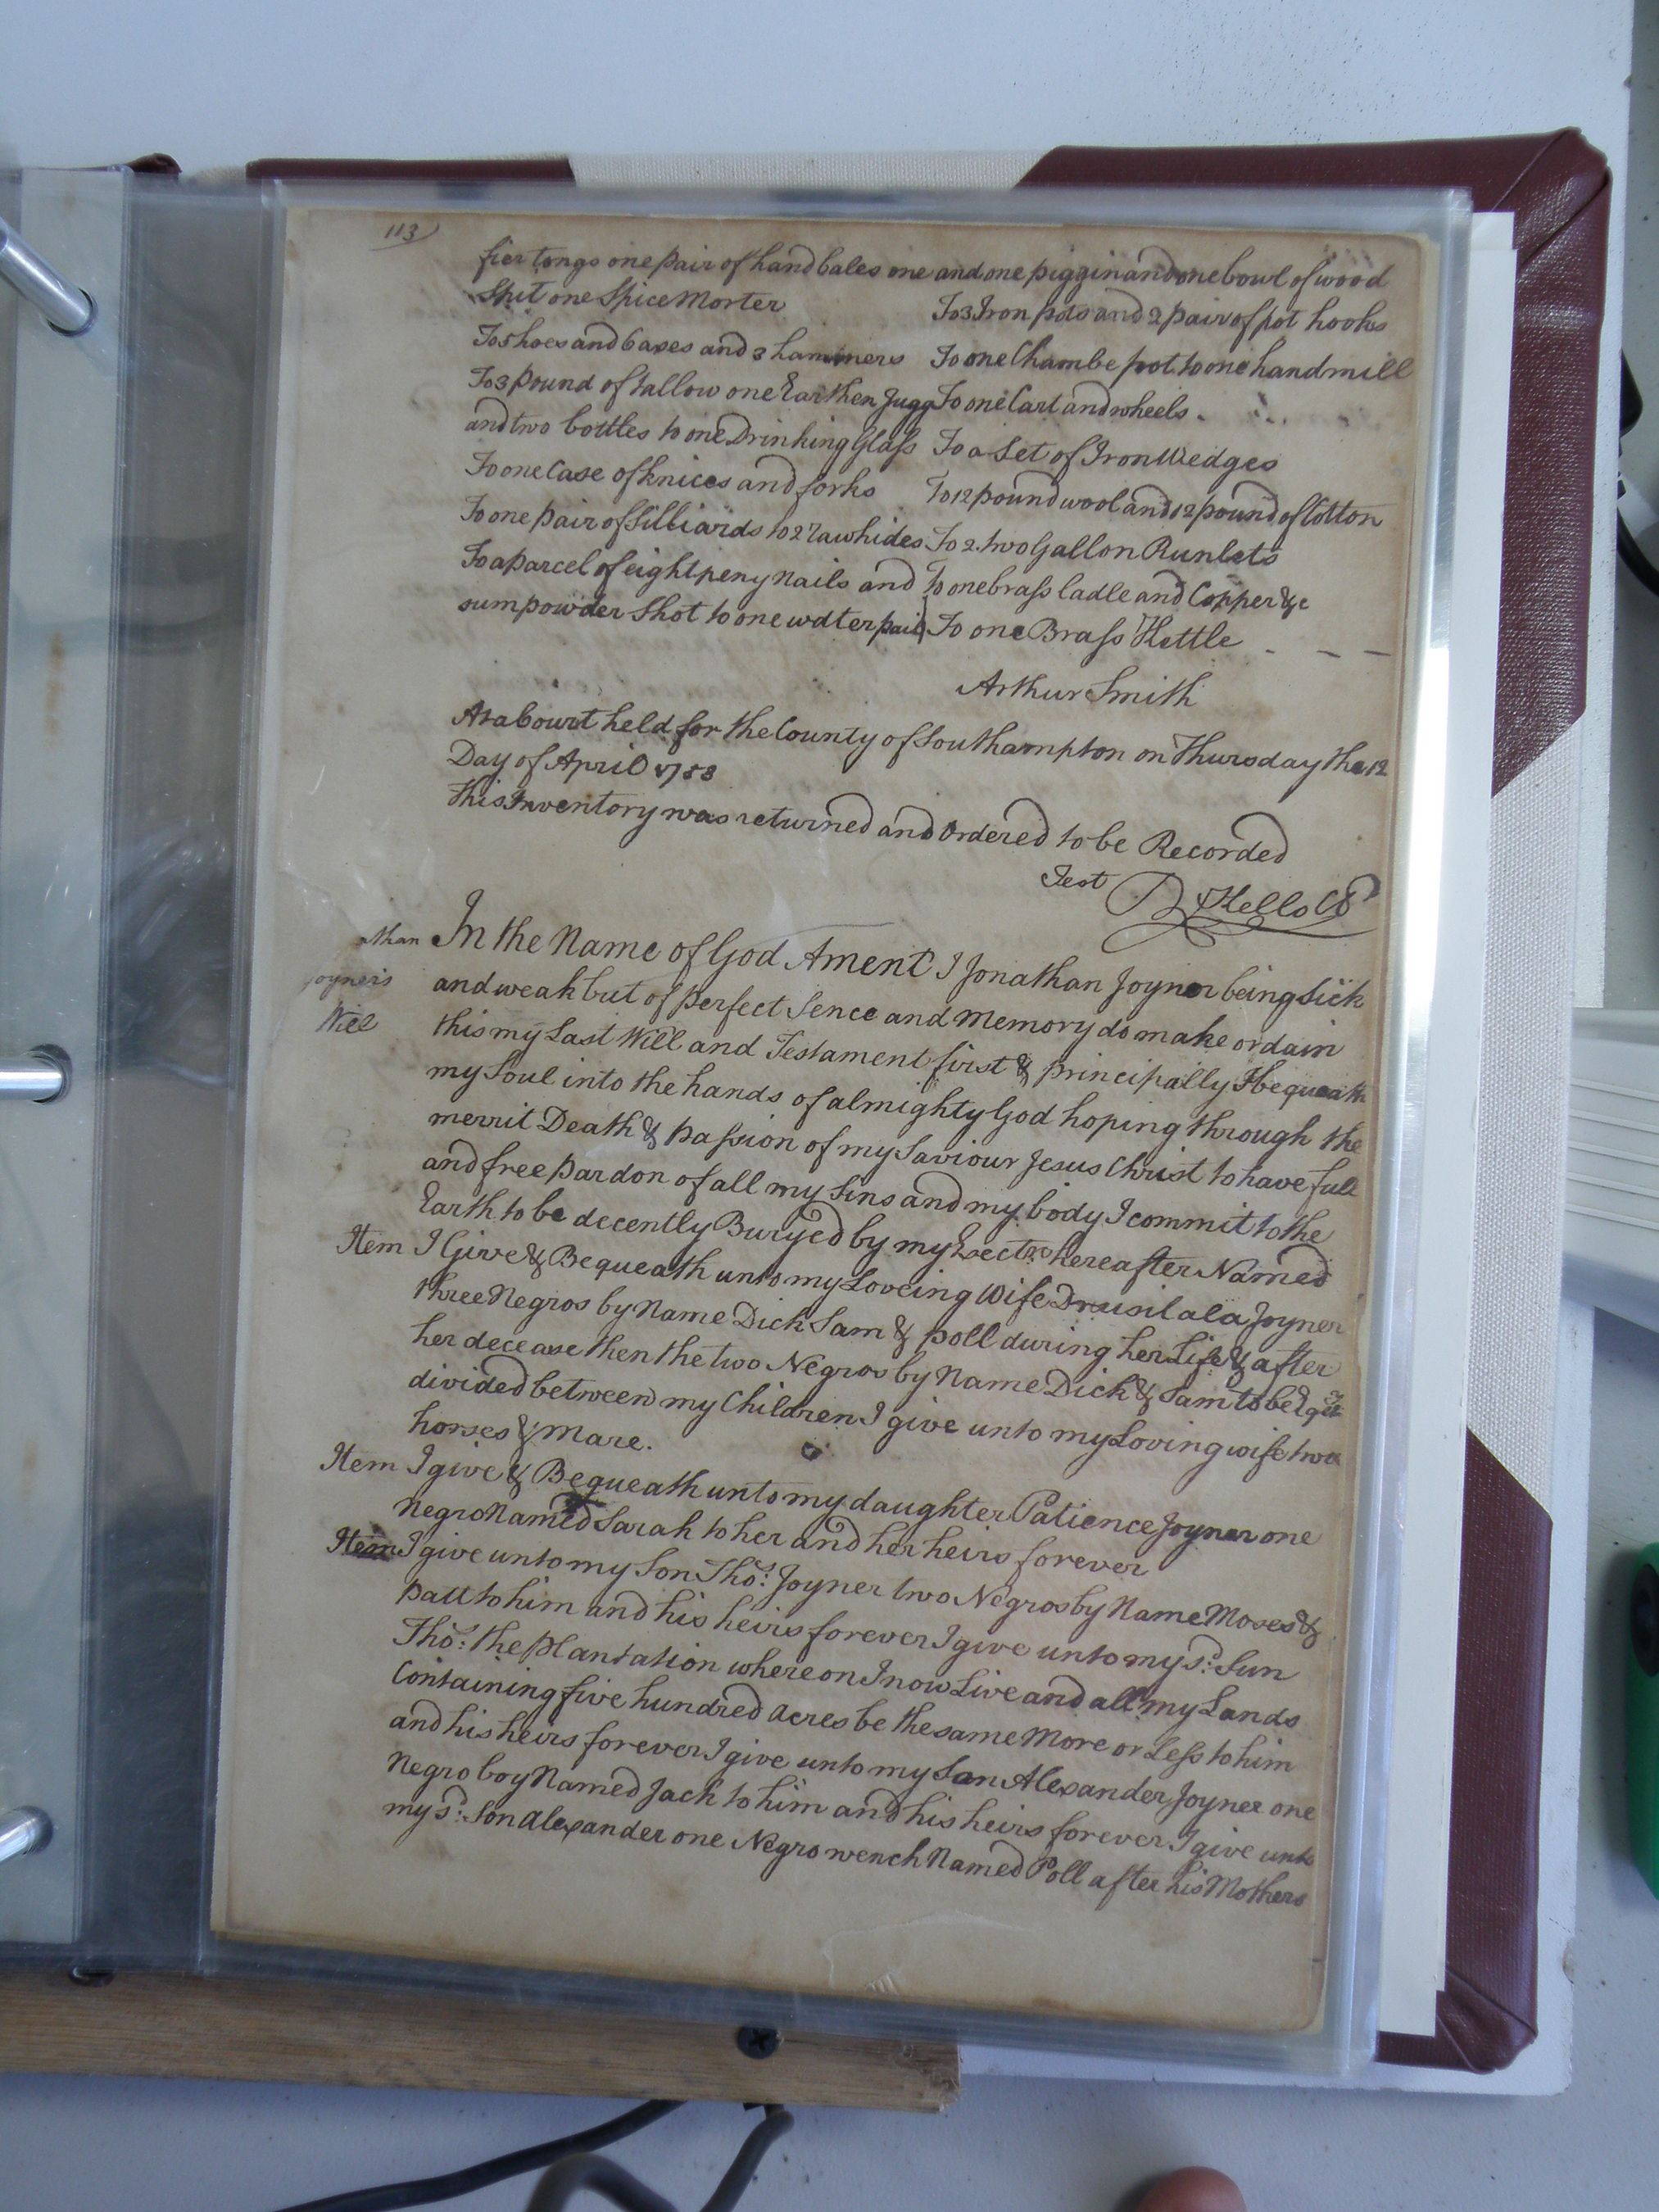 113
fier tongs one pair of hand bales one
Spit one Spice Morter
To 5 hoes and 6 axes and 3 hammers
To 3 pound of tallow one Earthen Jugg
and two bottles to one Drinking Glass
To one Case of knices and forks
To one pair of Silliards to 2 rawhides
To a parcel of eight peny Nails and
sum powder Shot to one watter pail
and one piggin and one bowl of wood
To 3 Iron pots and 2 pair of pot hooks
To one Chambe pot to one hand mill
To one Cart and wheels
To a Set of Iron Wedges
To 12 pound wool and 12 pound of Cotton
To 2 two Gallon Runlets
To one brass ladle and Copper &c
To one Brass Kettle - - -
Arthur Smith
At a Court held for the County of Southampton on Thursday the 12
Day of April 1753
this Inventory was returned and Ordered to be Recorded
Test
athan
Joyners
Will
In the Name of God Ament I Jonathan Joyner being Sick
and weak but of perfect Sence and Memory do make ordain
this my Last Will and Testament first & principally I bequeath
my Soul into the hands of almighty God hoping through the
merrit Death & passion of my Saviour Jesus Christ to have full
and free pardon of all my Sins and my body I commit to the
Earth to be decently Buryed by my hereafter Named
Item I Give & Bequeath unto my Loveing Wife Drusilala Joyner
three Negros by Name Dick Sam & poll during her Life & after
her decease then the two Negros by Name Dick & Sam to be
divided between my Children I give unto my Loving wife two
horses & Mare.
Item I give & Bequeath unto my daughter Patience Joyner one
Negro Named Sarah to her and her heirs forever
Item I give unto my Son Tho: Joyner two Negros by Name Moses &
patt to him and his heirs forever I give unto my sd: Sun
Tho: the plantation whereon I now Live and all my Lands
Containing five hundred acres be the same More or Less to him
and his heirs forever I give unto my Son Alexander Joyner one
Negro boy Named Jack to him and his heirs forever I give unto
my sd: Son Alexander one Negro wench Named Poll after his Mothers